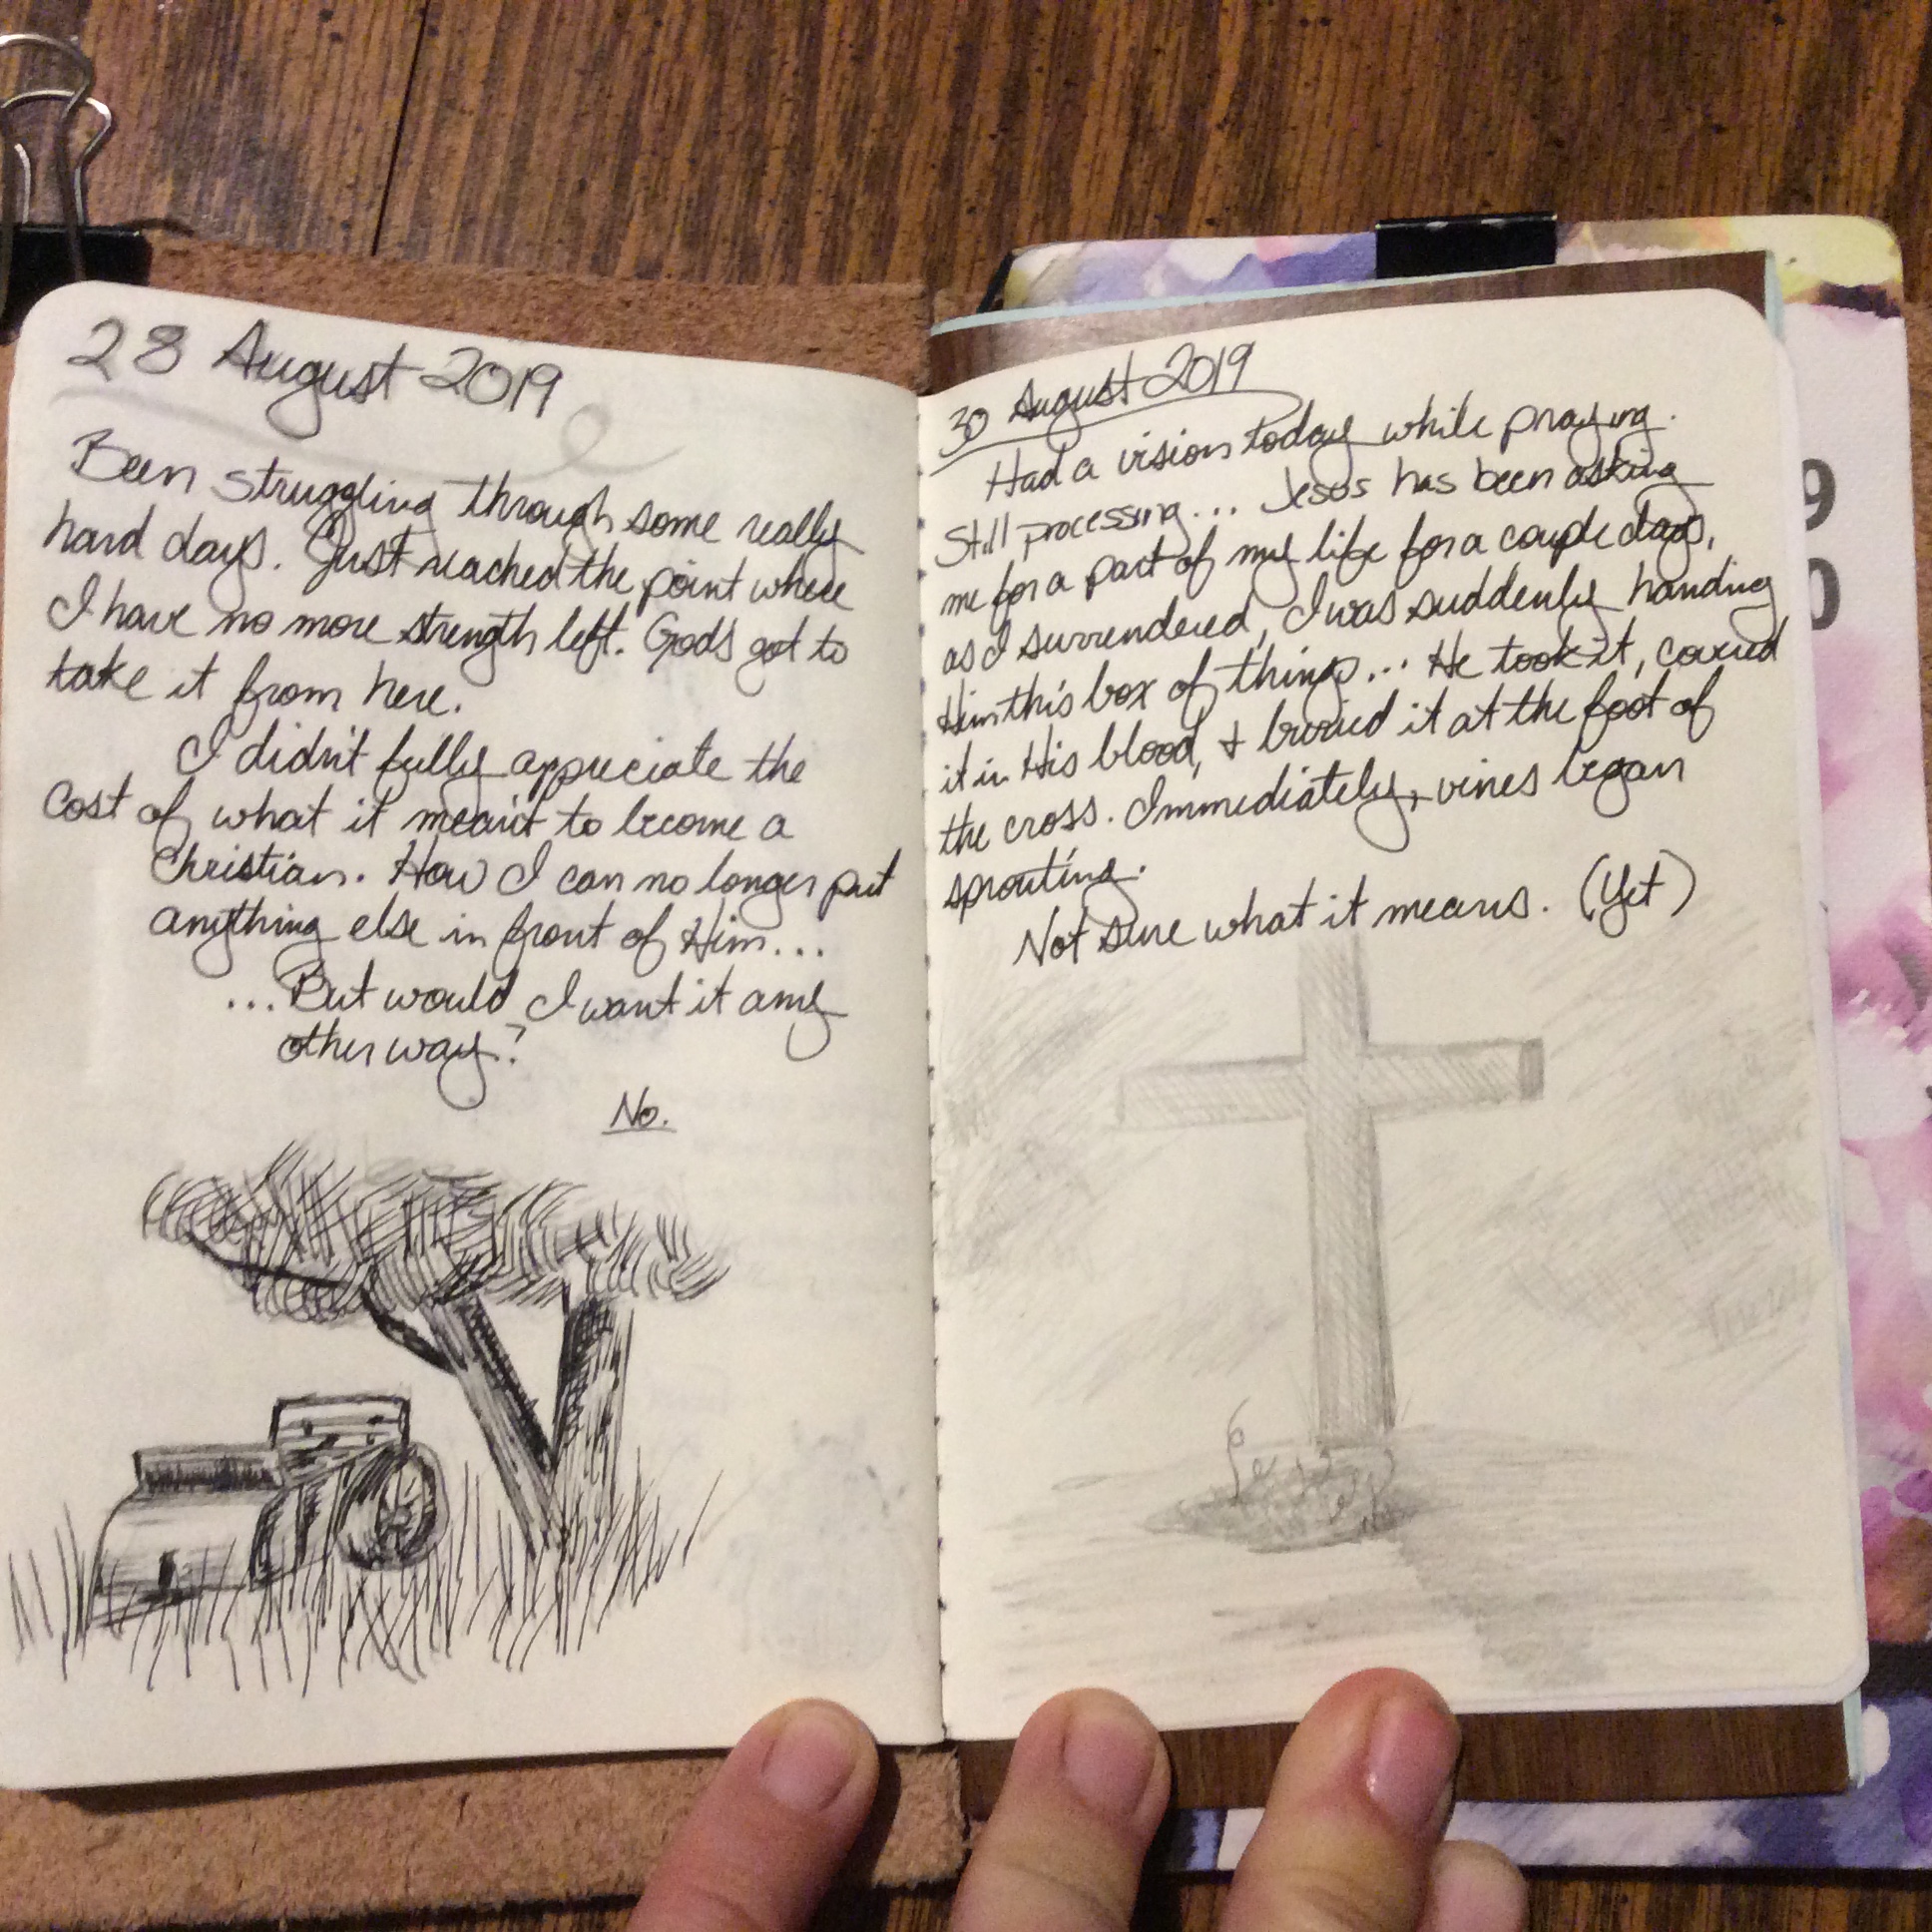 28 August 2019
Been struggling through some really
hard days. Just reached the point where
I have no more strength left. God's got to
take it from here.
I didn't fully appreciate the
cost of what it meant to become a
Christian. How I can no longer put
anything else in front of Him...
...But would I want it any
other way?
No.
30 August 2019
Had a vision today while praying.
Still processing... Jesus has been asking
me for a part of my life for a couple days,
as I surrendered, I was suddenly handing
Him this box of things... He took it, covered
it in His blood, & buried it at the foot of
the cross. Immediately, vines began
sprouting.
Not sure what it means. (Yet)
9
0